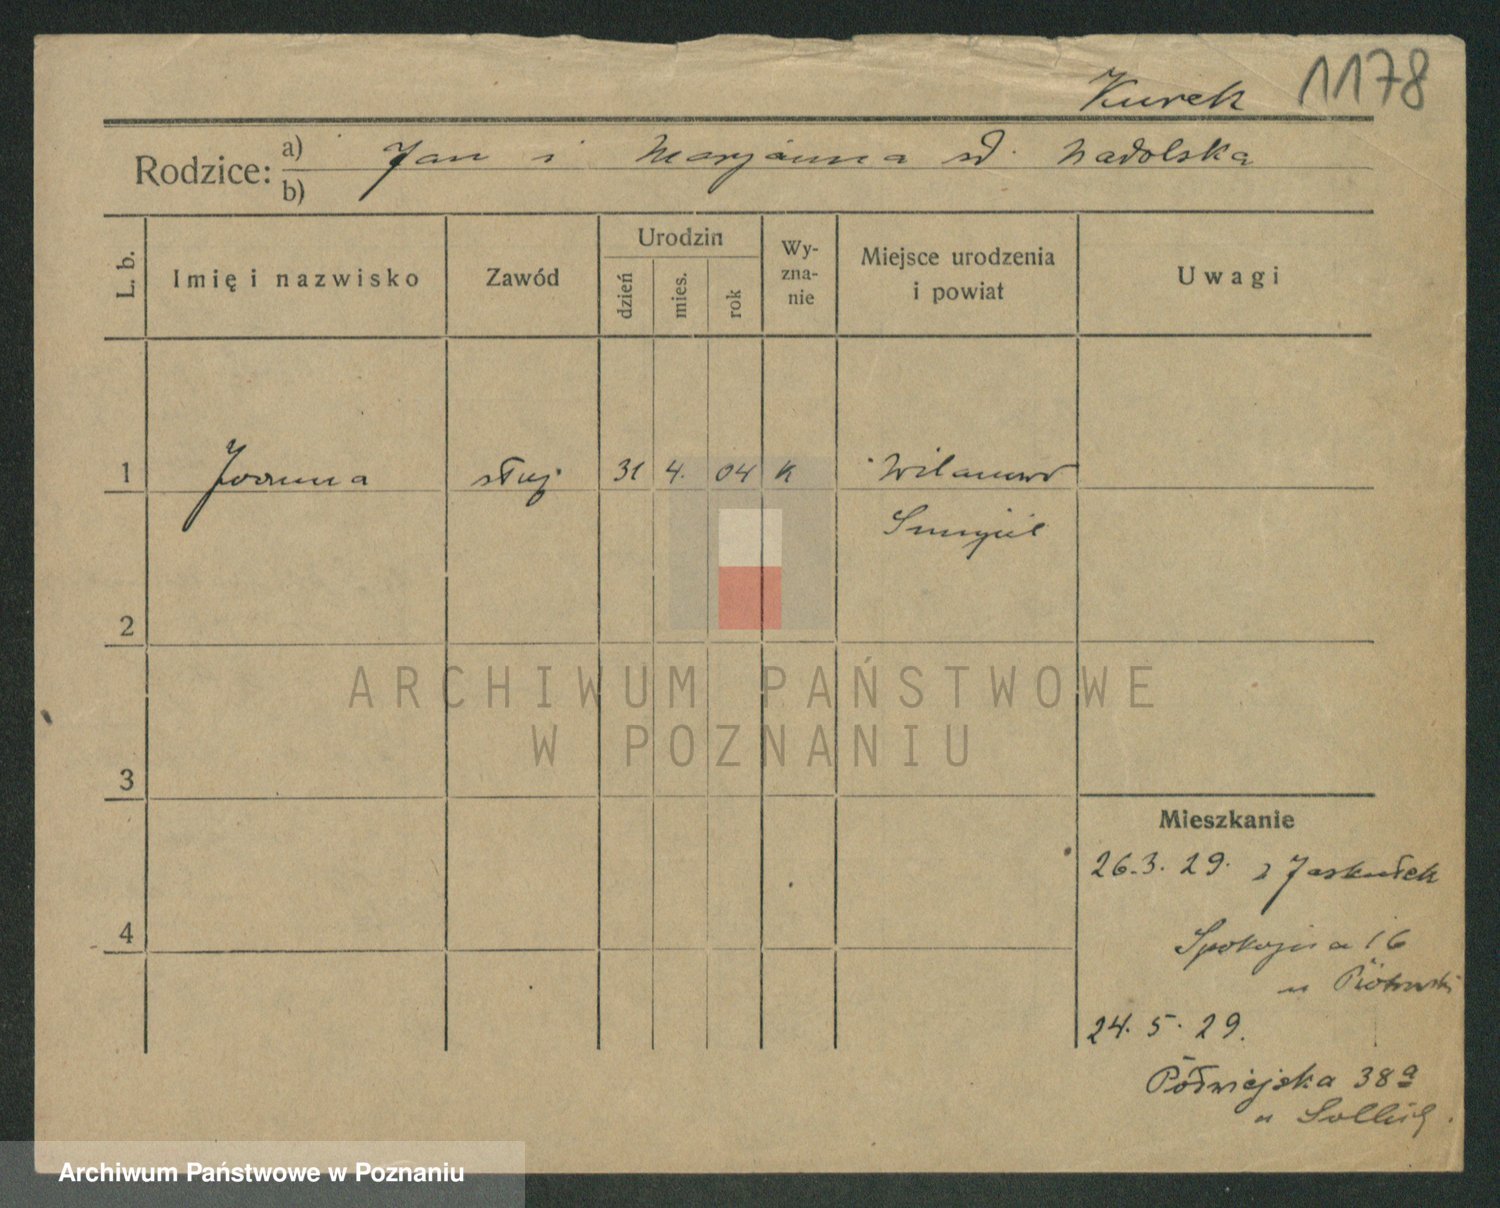 Kurek 1178
Rodzice: a) Jan i Maryanna sd. Nadolska
b)
L. b.
Imię i nazwisko
Zawód
Urodzin
dzień
mies.
rok
Wy-
zna-
nie
Miejsce urodzenia
i powiat
Uwagi
1 Joanna służ 31 4. 04 K Wilanowo
Śmigiel
2
ARCHIWUM PAŃSTWOWE
W POZNANIU
3
Mieszkanie
26.3.29. z Jaskułek
4
Spokojna 16
u Piotrowski
24.5.29.
Półwiejska 38a
u
Archiwum Państwowe w Poznaniu